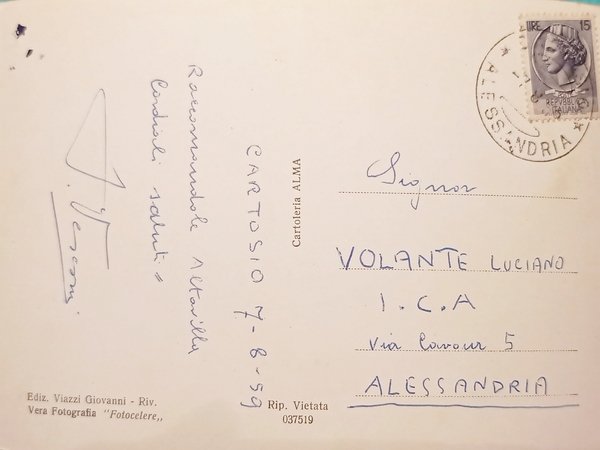 CARTOSIO 7-8-59
Raccomandole Altavilla
Cordiali saluti
Cartoleria ALMA
LIRE 15
REPVBBLICA
ITALIANA
ALESSANDRIA
Signor
VOLANTE LUCIANO
I.C.A
Via Cavour 5
ALESSANDRIA
Ediz. Viazzi Giovanni - Riv.
Vera Fotografia "Fotocelere„
Rip. Vietata
037519